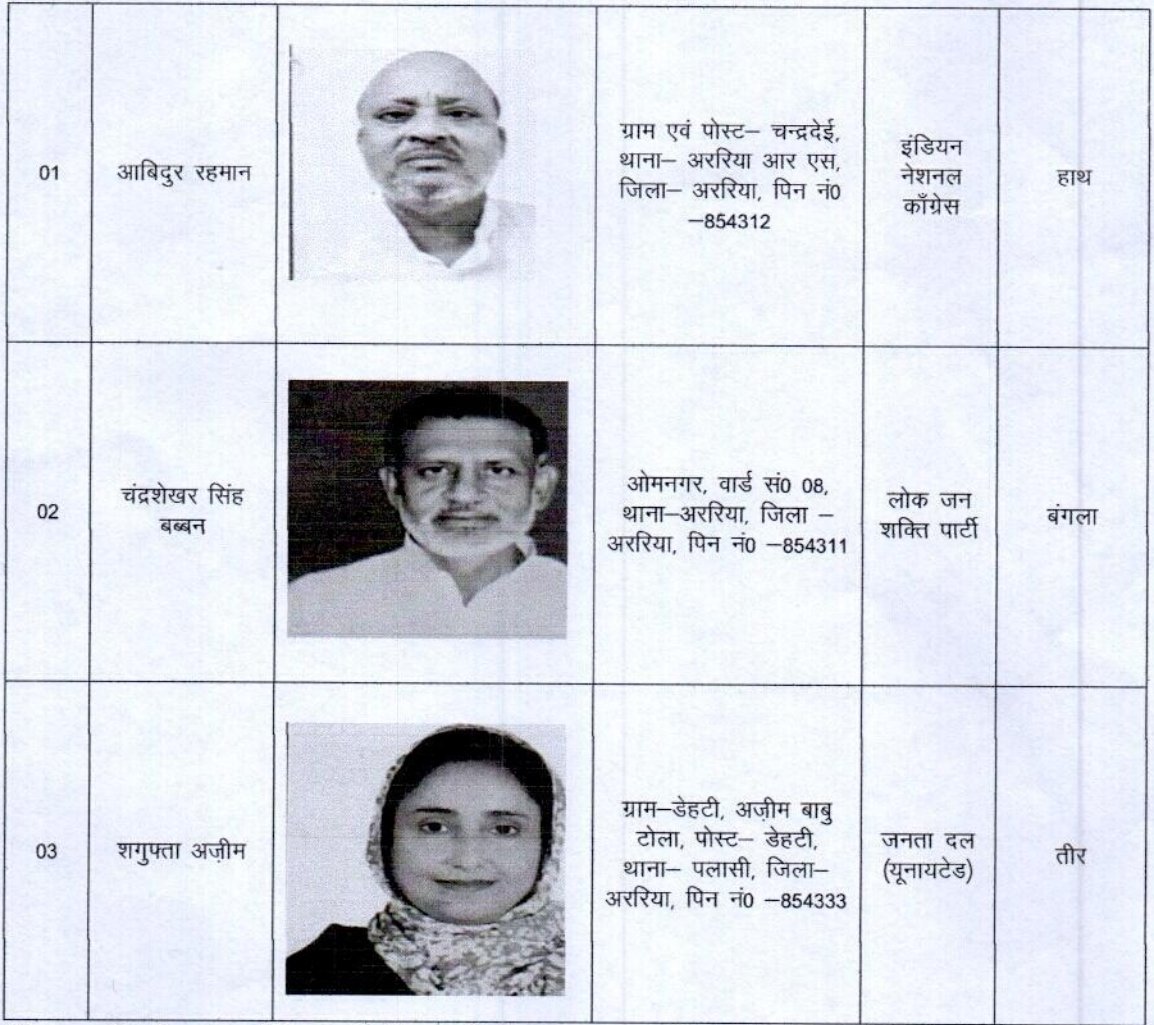 01
आबिदुर रहमान
ग्राम एवं पोस्ट– चन्द्रदेई,
थाना– अररिया आर एस,
जिला– अररिया, पिन नं0
–854312
इंडियन
नेशनल
काँग्रेस
हाथ
02
चंद्रशेखर सिंह
बब्बन
ओमनगर, वार्ड सं0 08,
थाना–अररिया, जिला –
अररिया, पिन नं0 –854311
लोक जन
शक्ति पार्टी
बंगला
03
शगुफ्ता अज़ीम
ग्राम–डेहटी, अज़ीम बाबु
टोला, पोस्ट– डेहटी,
थाना– पलासी, जिला–
अररिया, पिन नं0 –854333
जनता दल
(यूनायटेड)
तीर